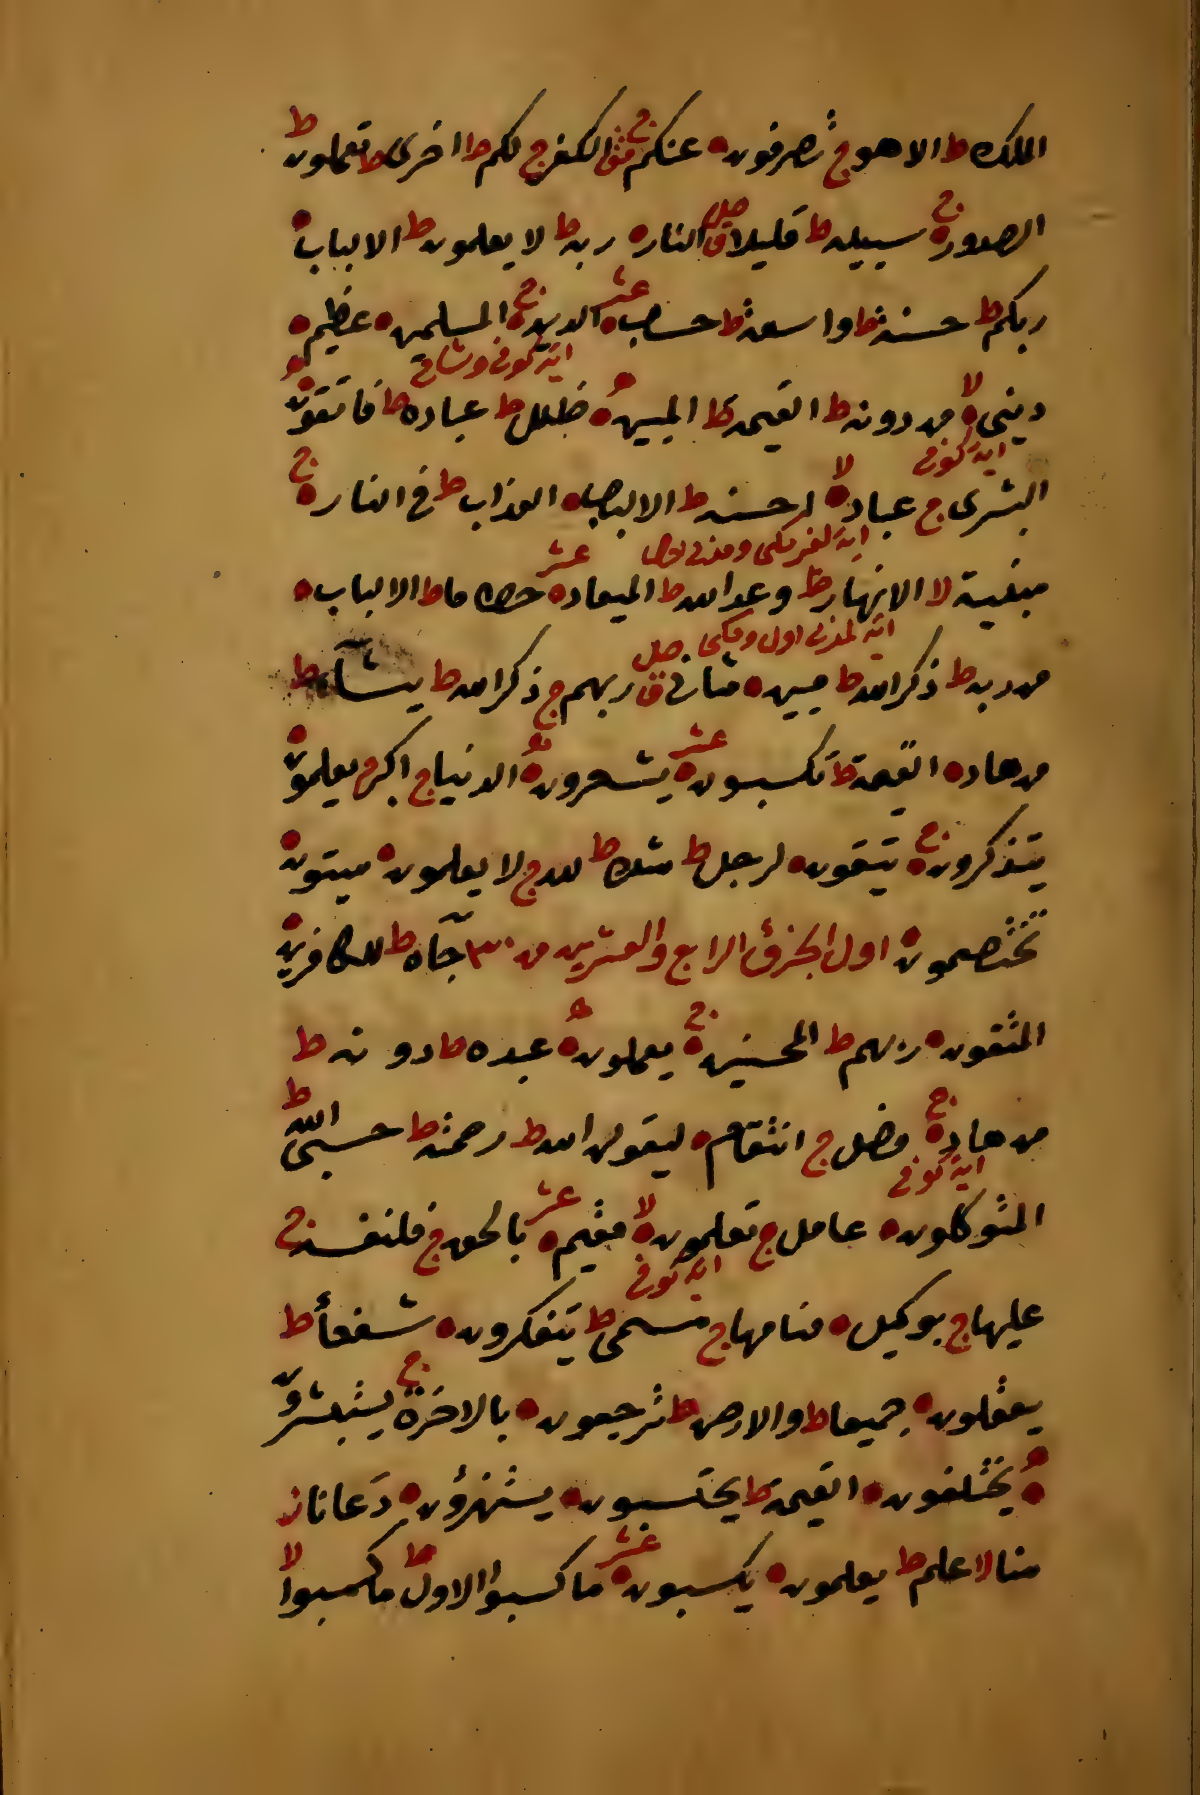 الملك ط الا هو ج تصرفون ه عنكم ج قف الكفر ج لكم ط اخرى ط تعملون ط
الصدور ه ج سبيله ط قليلا ق صل النار ه ربه ط لا يعلمون ط الالباب ه
ربكم ط حسنة ط واسعة ط حساب ه عشر الدين ه ج المسلمين ه عظيم ه
اية كوفى وشامى
دينى ه لا من دونه ط القيمة ط المبين ه ظلل ط عباده ط فاتقون ه
اية كوفى
البشرى ج عباد ه لا احسنه ط الالباب ه العذاب ط فى النار ه ج
اية لغير مكى ومدنى
مبنية لا الانهار ط وعد الله ط الميعاد ه عشر حطاما ط الالباب ه
اية لمدنى اول ومكى
من ربه ط ذكر الله ط مبين ه مثانى ق صل ربهم ج ذكر الله ط يشاء ط
من هاد ه القيمة ط تكسبون ه عشر يشعرون ه الدنيا ج اكبر م يعلمون ه
يتذكرون ه ج يتقون ه لرجل ط مثلا ط لله ج لا يعلمون ه ميتون ه
تختصمون ه اول الجزؤ الرابع والعشرين من ٣٠ جآءه ط للكافرين ه
المتقون ه ربهم ط المحسنين ه ج يعملون ه عبده ط دونه ط
من هاد ه ج مضل ج انتقام ه ليقولن الله ط رحمته ط حسبى الله ط
اية كوفى
المتوكلون ه عامل ج تعلمون ه لا مقيم ه عشر بالحق ج فلنفسه ج
اية كوفى
عليها ج بوكيل ه منامها ج مسمى ط يتفكرون ه شفعأ ط
يعقلون ه جميعا ط والارض ط ترجعون ه بالاخرة ج يستبشرون
ه يختلفون ه القيمة ط يحتسبون ه يستهزؤن ه دعانا
منا لا علم ط يعلمون ه يكسبون ه عشر ما كسبوا الاول ط ما كسبوا لا